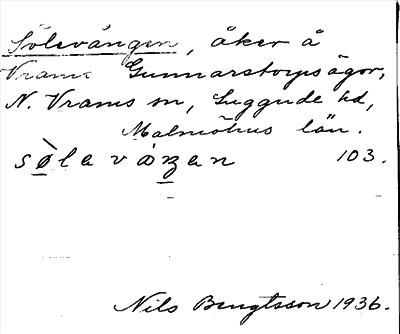 Sölevången, åker å
Vrams Gunnarstorps ägor,
N. Vrams sn, Luggude hd,
Malmöhus län.
sø̀levȧŋen 103.
Nils Bengtsson 1936.